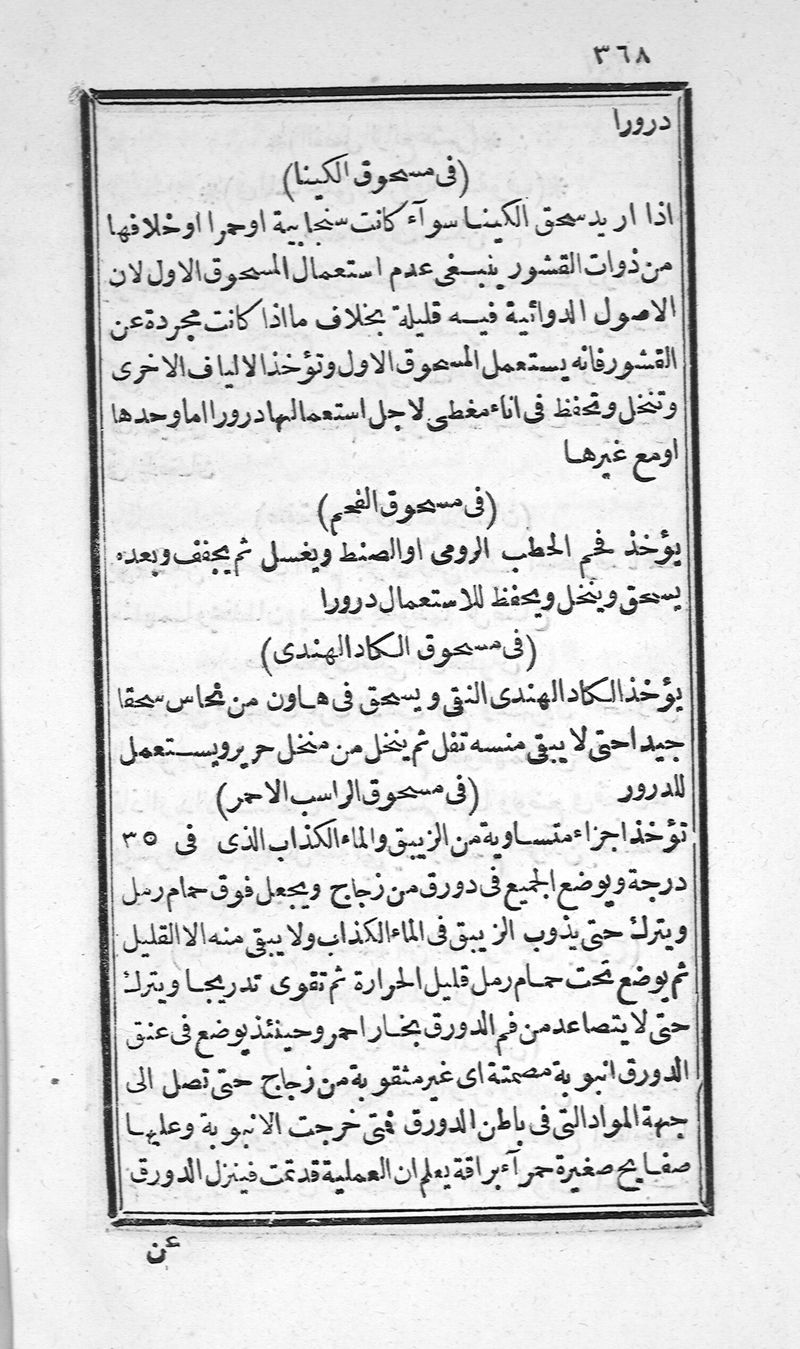 ٣٦٨
درورا
(فى مسحوق الكينا)
اذا اريد سحق الكينا سوآء كانت سنجابية اوحمرا اوخلافها
من ذوات القشور ينبغى عدم استعمال المسحوق الاول لان
الاصول الدوائية فيه قليلة بخلاف مااذا كانت مجردة عن
القشور فانه يستعمل المسحوق الاول وتؤخذ الالياف الاخرى
وتنخل وتحفظ فى اناء مغطى لاجل استعمالها درورا اما وحدها
اومع غيرها
(فى مسحوق الفحم)
يؤخذ فحم الحطب الرومى اوالصنط ويغسل ثم يجفف وبعده
يسحق وينخل ويحفظ للاستعمال درورا
(فى مسحوق الكاد الهندى)
يؤخذ الكاد الهندى النقى ويسحق فى هاون من نحاس سحقا
جيدا حتى لا يبقى منسه تفل ثم ينخل من منخل حرير ويستعمل
للدرور (فى مسحوق الراسب الاحمر)
تؤخذ اجزاء متساوية من الزيبق والماء الكذاب الذى فى ٣٥
درجة ويوضع الجميع فى دورق من زجاج ويجعل فوق حمام رمل
ويترك حتى يذوب الزيبق فى الماء الكذاب ولا يبقى منه الا القليل
ثم يوضع تحت حمام رمل قليل الحرارة ثم تقوى تدريجا ويترك
حتى لا يتصاعد من فم الدورق بخار احمر وحينئذ يوضع فى عنق
الدورق انبوبة مصمتة اى غير مثقوبة من زجاج حتى تصل الى
جهة المواد التى فى باطن الدورق فمتى خرجت الانبوبة وعليها
صفايح صغيرة حمرآء براقة يعلم ان العملية قد تمت فينزل الدورق
عن